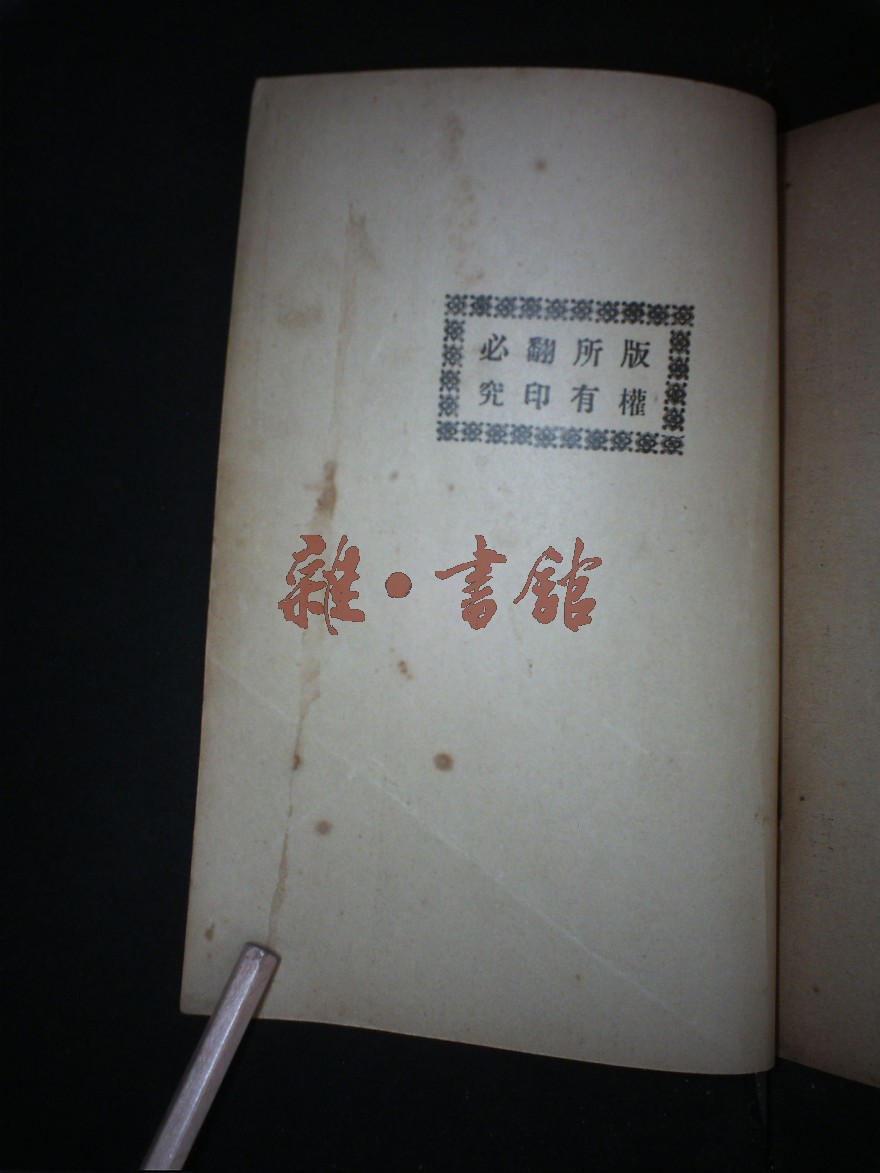 版權
所有
翻印
必究
雜·書館